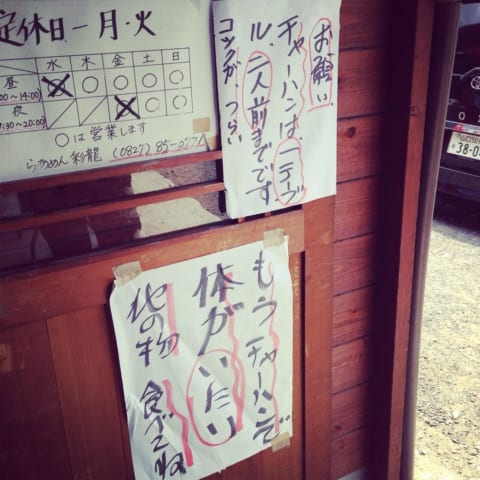 定休日－月・火
水 木 金 土 日
昼
00～14:00
夜
:30～20:00
○は営業します
らうめん彩龍 (0827)85-0771
お願い、
チャーハンは 一テーブ
ル、二人前までです
コックが、つらい
もうチャーハンで
体がいたい
他の物 食べてね
38-0